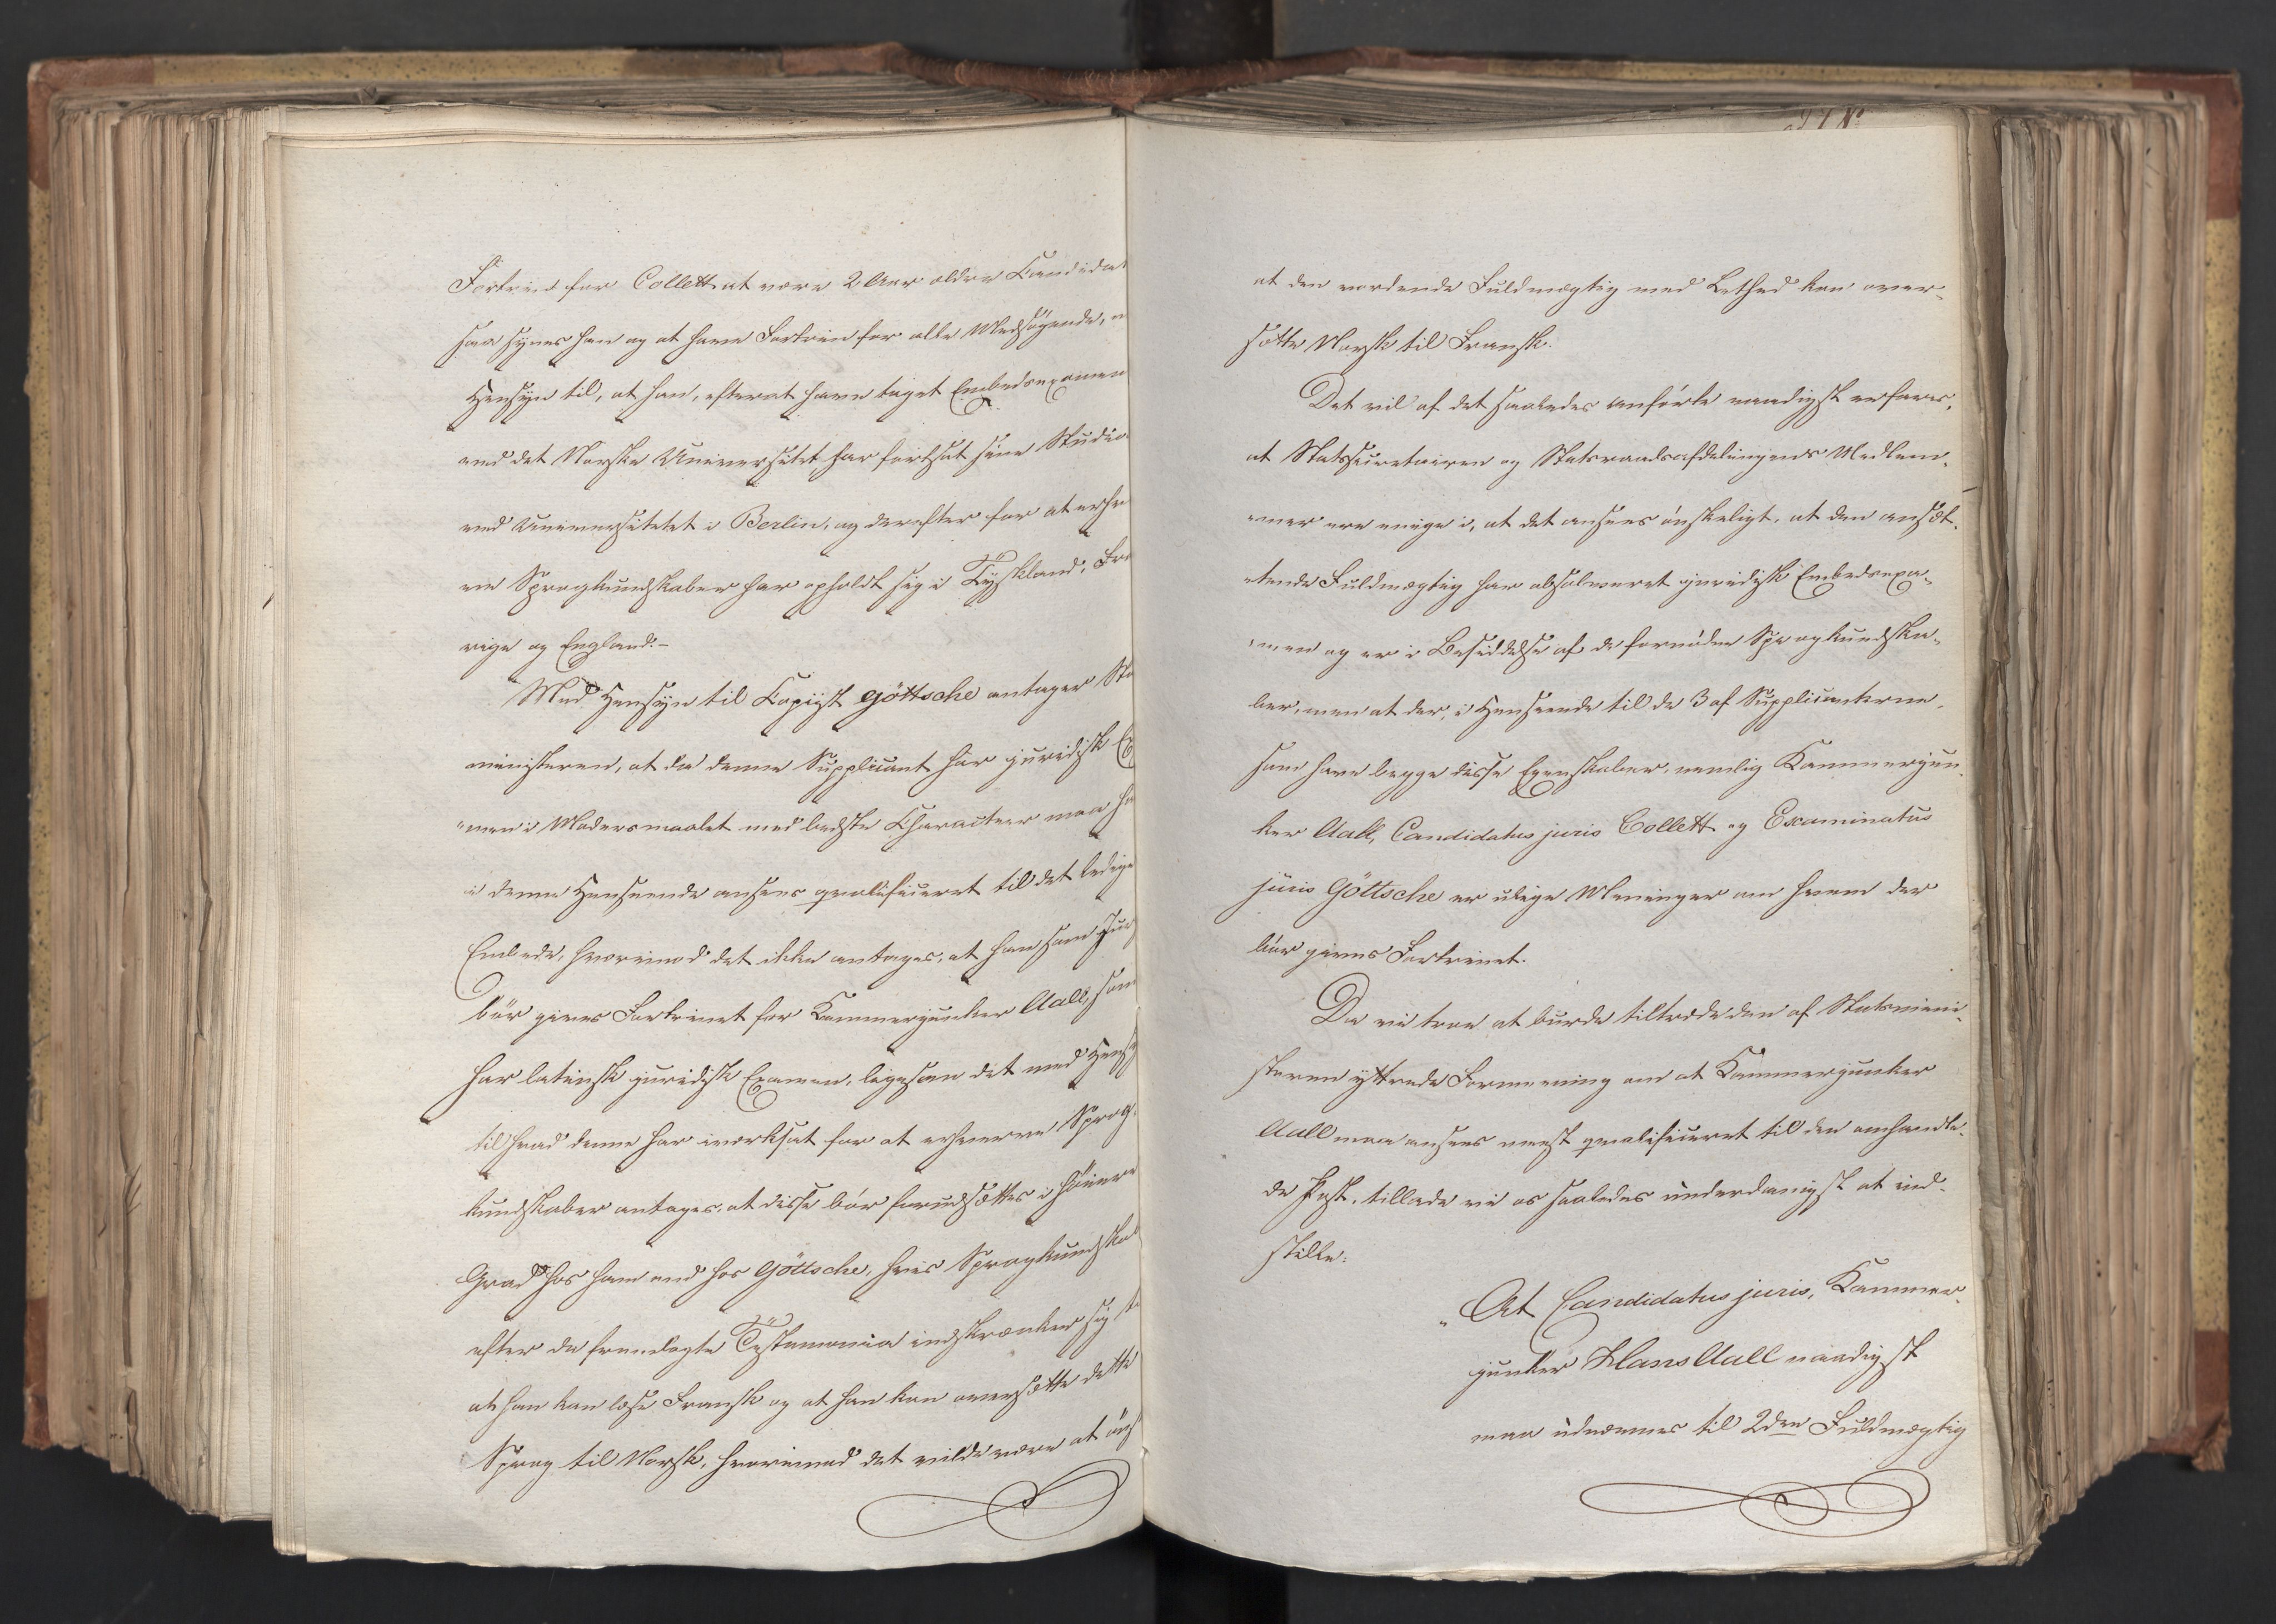 Fortrin for Collett at være 2 Aar ældre Candidat
saa synes han og at have Fortrin for alle Medsøgende, 
Hensyn til, at han, efterat have taget Embedsexamen
ved det Norske Universitet har fortsat sine Studier
ved Universitetet i Berlin, og derefter for at erhv
ve Sprogkundskaber har opholdt sig i Tydskland, Fra
rige og England.-
Med Hensyn til Copiist Göttsche antager Sta
ministeren, at da denne Supplicant har juridisk Ex
"men i Modersmaalet med bedste Characteer maa ha
i denne Henseende ansees qvalificeret til det ledige
Embede, hvorimod det ikke antages, at han som Jur
bör gives Fortrinet for Kammerjunker Aall, som
har latinsk juridisk Examen, ligesom det med Hensy
til hvad denne har iværksat for at erhverve Sprog-
kundskaber antages, at disse bör forudsættes i höiere
Grad hos ham end hos Göttsche, hvis Sprogkundska
efter de fremlagte Testimonia indskrænker sig t
at han kan læse Fransk og at han kan oversætte dette
Sprog til Norsk, hvorimod det vilde være at önsk
at den vordende Fuldmægtig med Lethed kan over-
sætte Norsk til Fransk.
Det vil af det saaledes anförte naadigst erfares,
at Statssecretairen og Statsraadsafdelingens Medlem-
"mer ere enige i, at det ansees önskeligt, at den ansæt-
"tende Fuldmægtig har absolveret juridisk Embedsexa-
"men og er i Besiddelse af de fornödne Sprogkundska-
ber, men at der, i Henseende til de 3 af Supplicanterne,
som have begge disse Egenskaber, nemlig Kammerjun-
ker Aall, Candidatus juris Collett og Examinatus
juris Göttsche er ulige Meninger om hvem der
bör gives Fortrinet.
Da vi troe at burde tiltræde den af Statsmini-
steren yttrede Formening om at Kammerjunker
Aall maa ansees meest qvalificeret til den omhandle-
de Post, tillade vi os saaledes underdanigst at ind-
stille:
"At Candidatus juris, Kammer-
junker Hans Aall naadigst
maa udnævnes til 2den Fuldmægtig